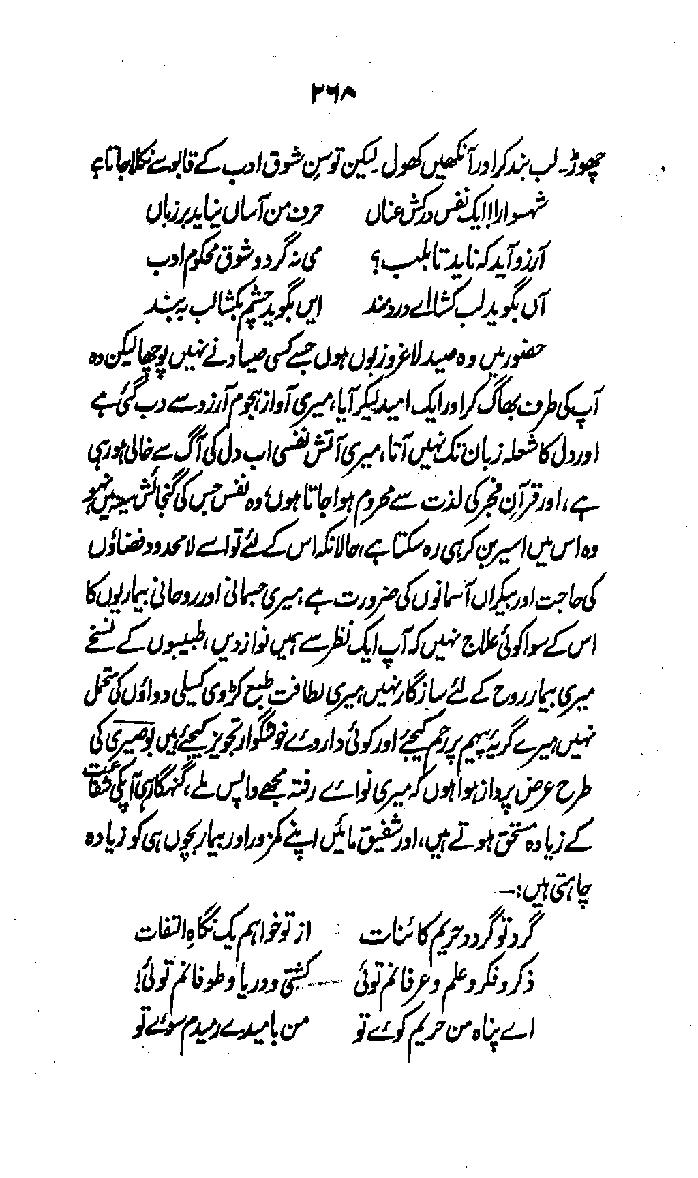 ۲۶۸
چھوڑ۔ لب بند کر اور آنکھیں کھول۔ لیکن توسنِ شوق ادب کے قابو سے نکلا جاتا ہے
شہسوارا! ایک نفس درکش عناں حرف من آساں نیاید بر زباں
آرزو آید کہ ناید تا بلب؟ می نہ گردد شوق محکوم ادب
آں بگوید لب کشا اے دردمند ایں بگوید چشم بکشا لب بہ بند
حضور میں وہ صید لاغر و زبوں ہوں جسے کسی صیاد نے نہیں پوچھا لیکن وہ
آپ کی طرف بھاگ کر اور ایک امید لیکر آیا، میری آواز ہجوم آرزو سے دب گئی ہے
اور دل کا شعلہ زبان تک نہیں آتا، میری آتش نفسی اب دل کی آگ سے خالی ہو رہی
ہے، اور قرآن فجر کی لذت سے محروم ہوا جاتا ہوں! وہ نفس جس کی گنجائش سینہ میں نہو
وہ اس میں اسیر بن کر ہی رہ سکتا ہے، حالانکہ اس کے لئے تو اسے لا محدود فضاؤں
کی حاجت اور بیکراں آسمانوں کی ضرورت ہے، میری جسمانی اور روحانی بیماریوں کا
اس کے سوا کوئی علاج نہیں کہ آپ ایک نظر سے ہمیں نواز دیں، طبیبوں کے نسخے
میری بیمار روح کے لئے سازگار نہیں، میری لطافت طبع کڑوی کسیلی دواؤں کی متحمل
نہیں، میرے گریۂ پیہم پر رحم کیجئے اور کوئی داروئے خوشگوار تجویز کیجئے میں بوصیری کی
طرح عرض پرداز ہوا ہوں کہ میری نوائے رفتہ مجھے واپس ملے، گنہگار ہی آپکی شفاعت
کے زیادہ مستحق ہوتے ہیں، اور شفیق مائیں اپنے کمزور اور بیمار بچوں ہی کو زیادہ
چاہتی ہیں:۔
گرد تو گردد حریم کائنات از تو خواہم یک نگاہِ التفات
ذکر و فکر و علم و عرفانم توئی کشتی و دریا و طوفانم توئی!
اے پناہ من حریم کوئے تو من بامیدے رمیدم سوئے تو